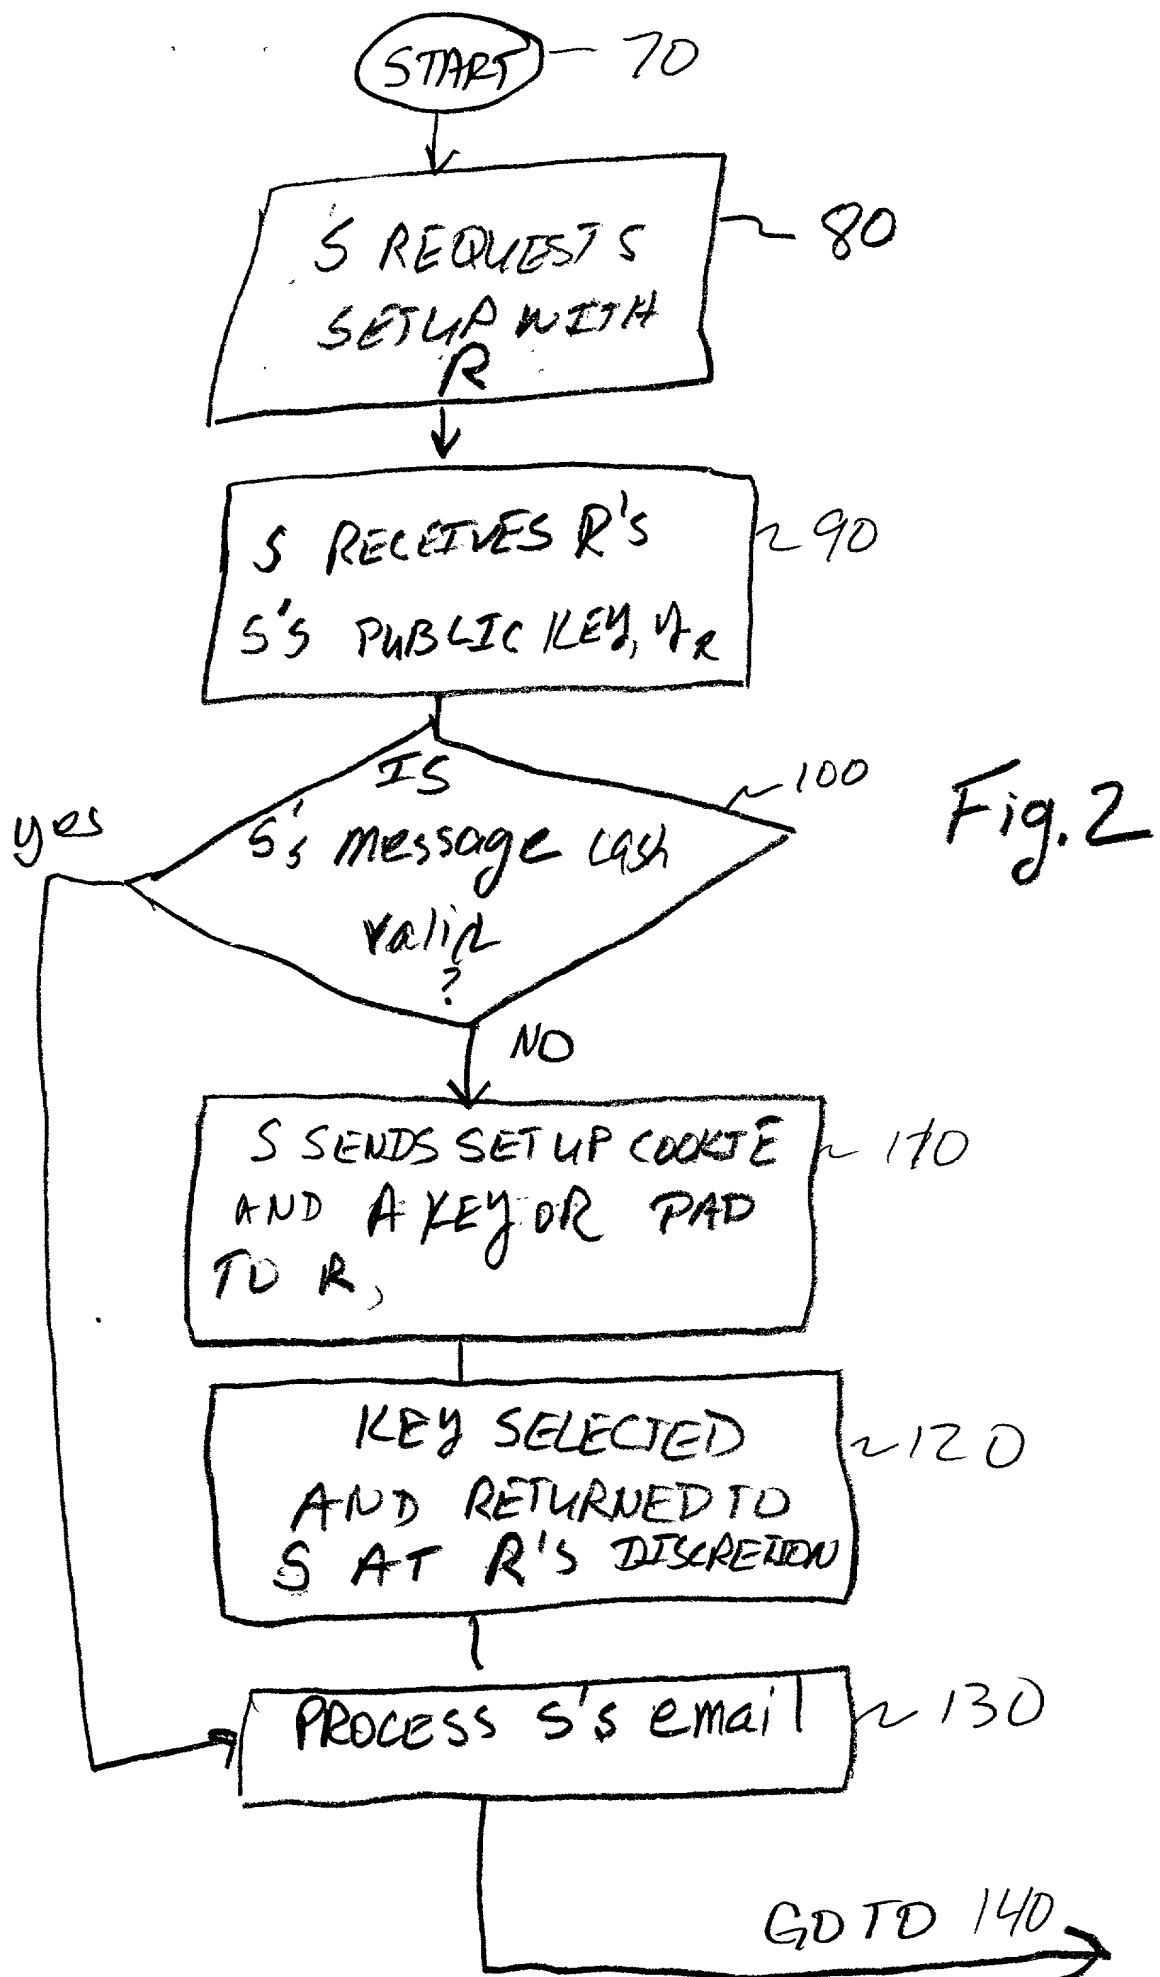 START 70
S REQUESTS
SETUP WITH
R
80
S RECEIVES R's
S's PUBLIC KEY, yR
90
IS
S's message cash
valid
?
100
yes
Fig. 2
NO
S SENDS SETUP COOKIE
AND A KEY OR PAD
TO R,
110
KEY SELECTED
AND RETURNED TO
S AT R's DISCRETION
120
PROCESS S's email
130
GO TO 140